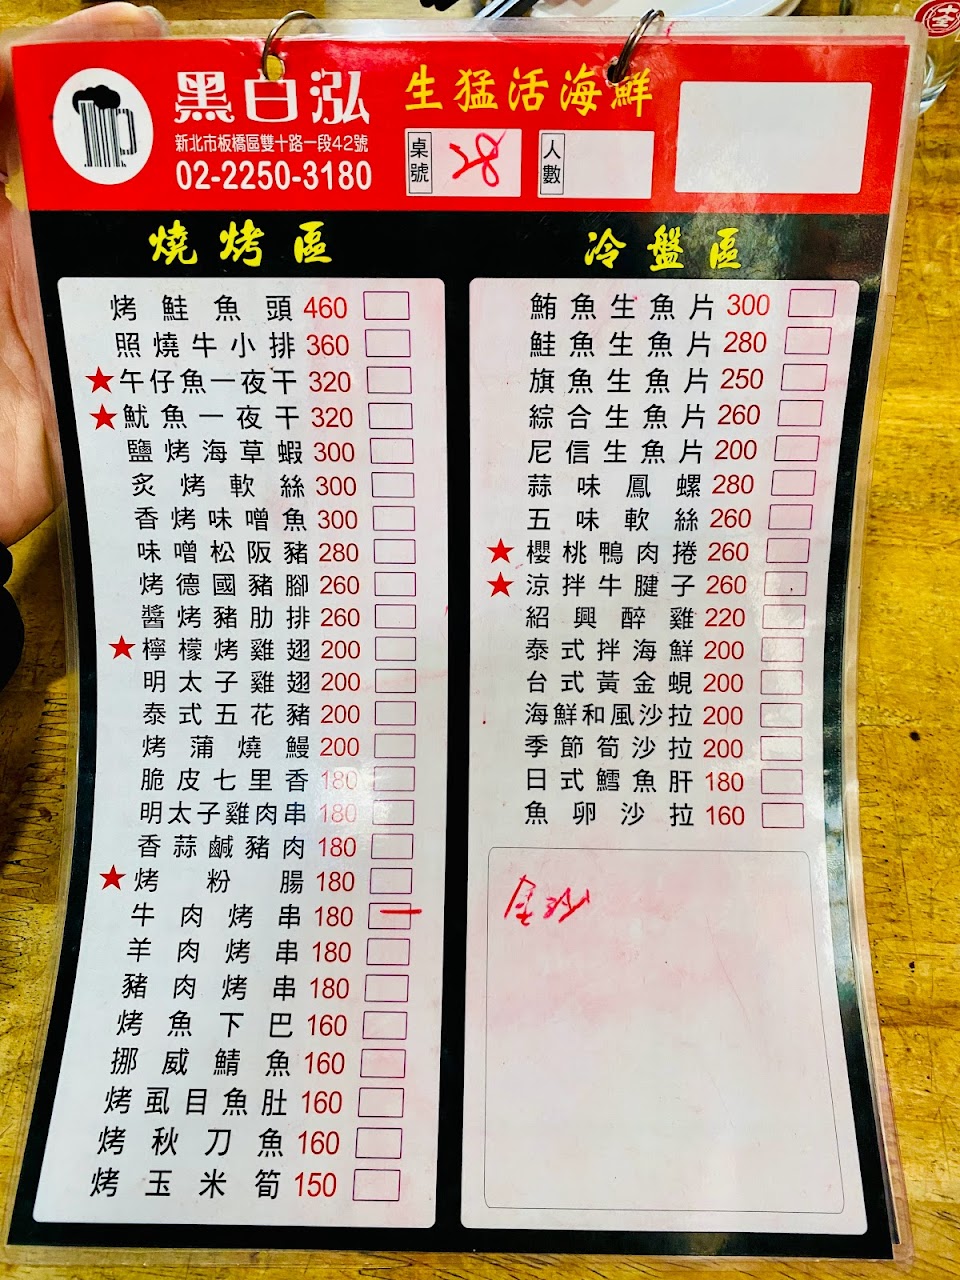 黑白泓
生猛活海鮮
新北市板橋區雙十路一段42號
02-2250-3180
桌號
人數
燒烤區
烤鮭魚頭 460
照燒牛小排 360
★午仔魚一夜干 320
★魷魚一夜干 320
鹽烤海草蝦 300
炙烤軟絲 300
香烤味噌魚 300
味噌松阪豬 280
烤德國豬腳 260
醬烤豬肋排 260
★檸檬烤雞翅 200
明太子雞翅 200
泰式五花豬 200
烤蒲燒鰻 200
脆皮七里香 180
明太子雞肉串 180
香蒜鹹豬肉 180
★烤粉腸 180
牛肉烤串 180
羊肉烤串 180
豬肉烤串 180
烤魚下巴 160
挪威鯖魚 160
烤虱目魚肚 160
烤秋刀魚 160
烤玉米筍 150
冷盤區
鮪魚生魚片 300
鮭魚生魚片 280
旗魚生魚片 250
綜合生魚片 260
尼信生魚片 200
蒜味鳳螺 280
五味軟絲 260
★櫻桃鴨肉捲 260
★涼拌牛腱子 260
紹興醉雞 220
泰式拌海鮮 200
台式黃金蜆 200
海鮮和風沙拉 200
季節筍沙拉 200
日式鱈魚肝 180
魚卵沙拉 160